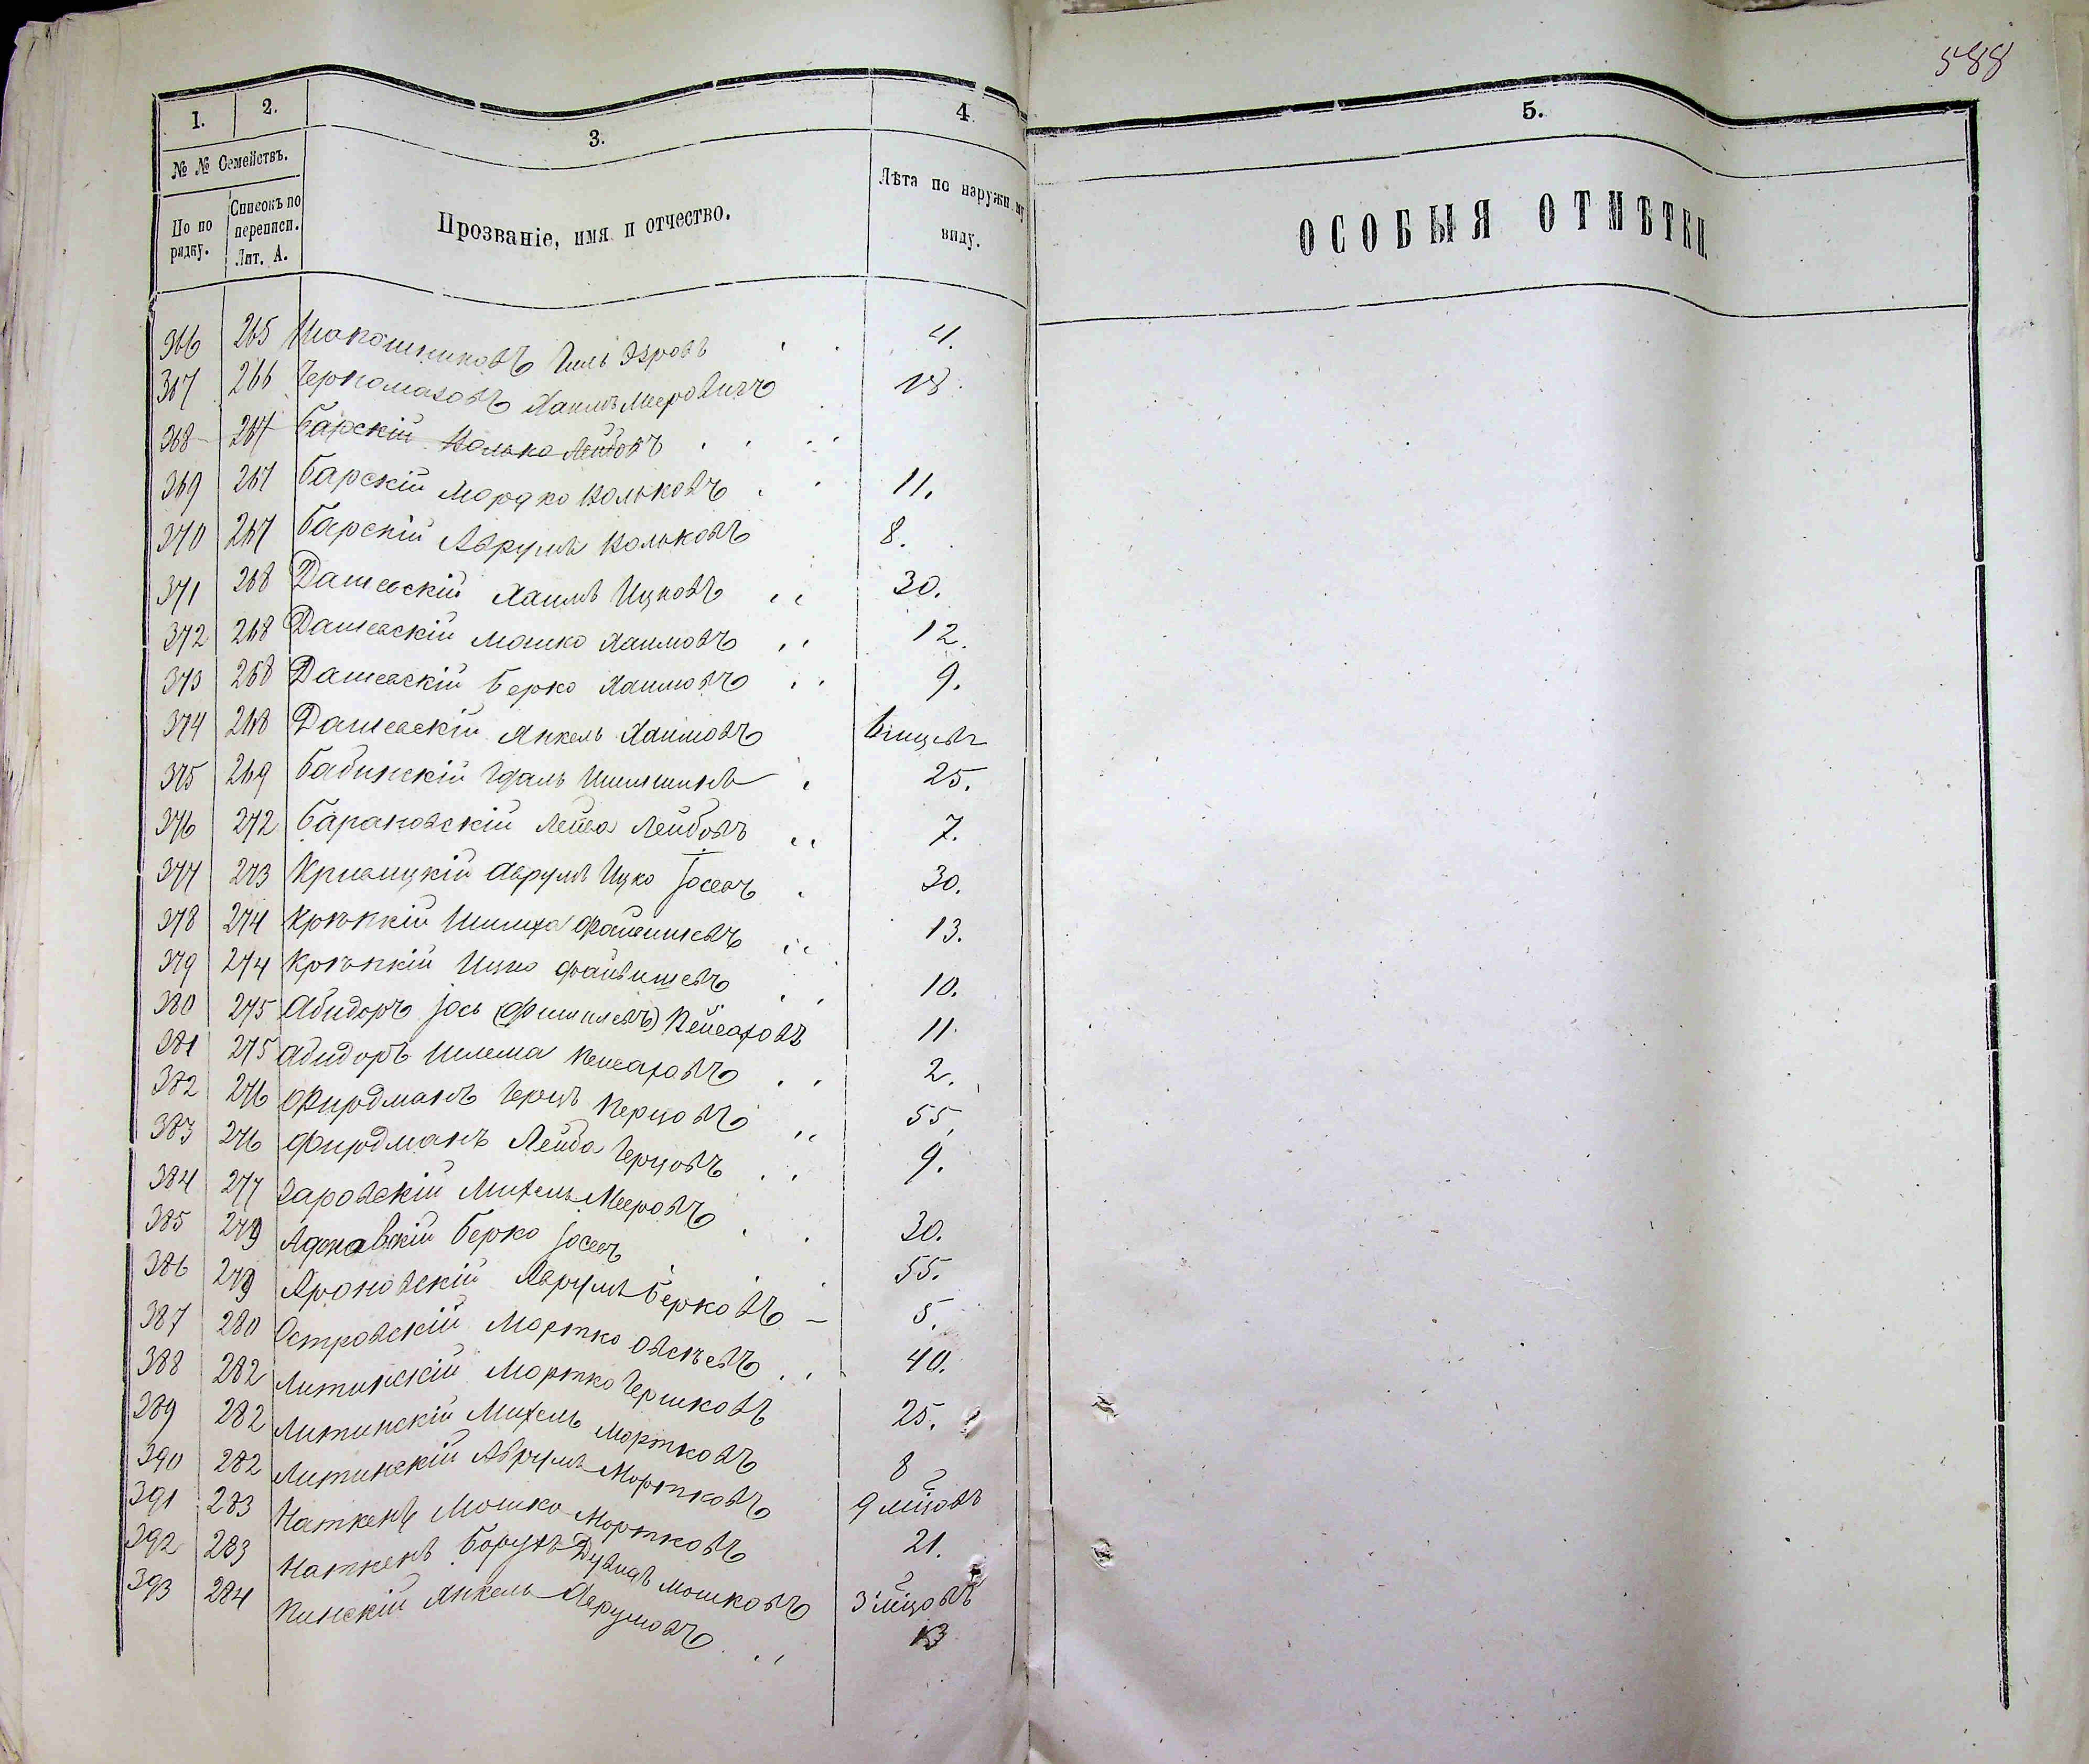 588
1. 2. 3. 4 5.
№ № Семействъ.
По по рядку.
Списокъ по переписи. Лит. А.
Прозваніе, имя и отчество.
Лѣта по наружн му виду.
ОСОБЫЯ ОТМѢТКИ.
366 265 Гиль 4.
367 266 Черномазовъ Хаимъ Мееровичъ 13.
368 267 Барскій Волько Лейбовъ
369 267 Барскій Мордко Вольковъ 11.
370 267 Барскій Аврумъ Вольковъ 8.
371 268 Дашевскій Хаимъ Ицковъ 30.
372 268 Дашевскій Мошко Хаимовъ 12.
373 268 Дашевскій Берко Хаимовъ 9.
374 268 Дашевскій Янкель Хаимовъ
375 269 Бабинскій Гдаль 25.
376 272 Барановскій Лейба Лейбовъ 7.
377 273 Аврумъ Ицко Іосевъ 30.
378 274 Крѣпкій Файвишевъ 13.
379 274 Крѣпкій Ицко Файвишевъ 10.
380 275 Абидоръ Іось (Фишилевъ) Пейсаховъ 11.
381 275 Абидоръ Шлема Пейсаховъ 2.
382 276 Фирдманъ Герцъ 55.
383 276 Фирдманъ Лейба Герцовъ 9.
384 277 Заровскій Михель Мееровъ 30.
385 279 Берко Іосевъ 55.
386 279 Ароновскій Аврумъ Берковъ – 5.
387 280 Островскій Мортко Овсѣевъ 40.
388 282 Литинскій Мортко Гершковъ 25.
389 282 Литинскій Михель Мортковъ 8
390 282 Литинскій Аврумъ Мортковъ 9 мцовъ
391 283 Наткенъ Мошко Мортковъ 21.
392 283 Наткенъ Борухъ Дувидъ Мошковъ 3 мцовъ
393 284 Пинскій Янкель Аврумовъ 13